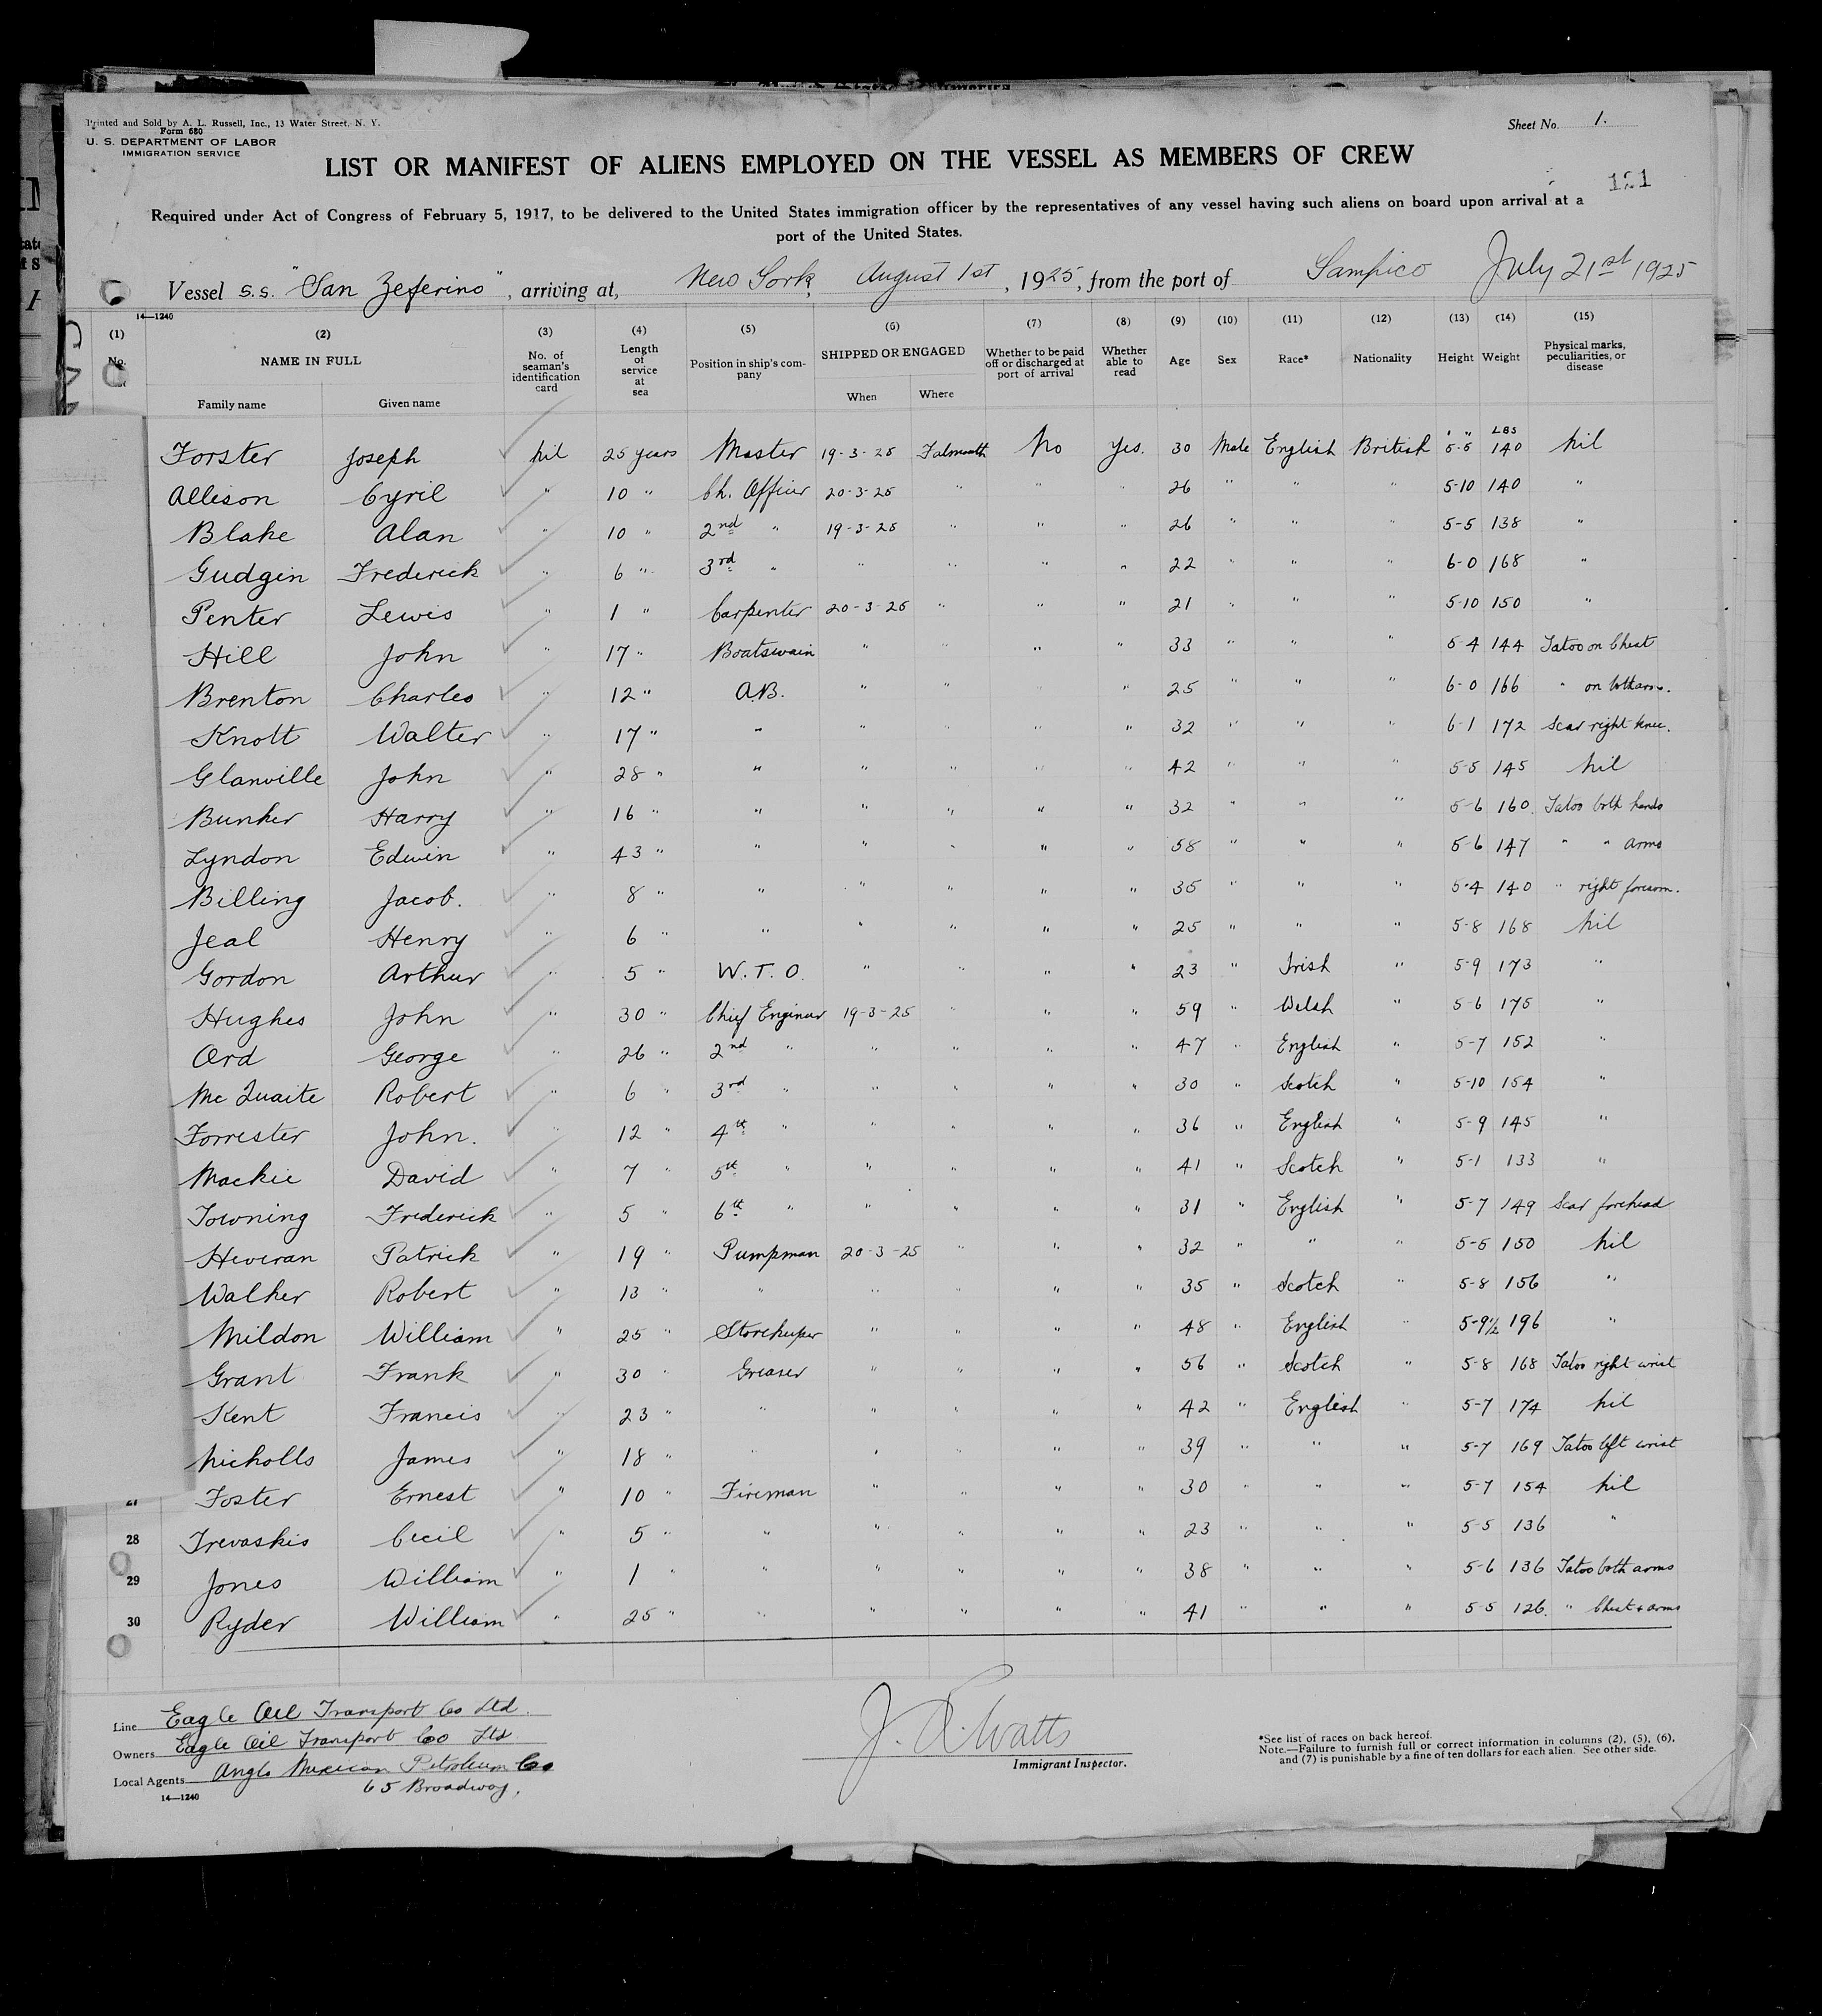 Printed and Sold by A. L. Russell, Inc., 13 Water Street, N. Y.
Form 680
U. S. DEPARTMENT OF LABOR
IMMIGRATION SERVICE
Sheet No. 1.
LIST OR MANIFEST OF ALIENS EMPLOYED ON THE VESSEL AS MEMBERS OF CREW
121
Required under Act of Congress of February 5, 1917, to be delivered to the United States immigration officer by the representatives of any vessel having such aliens on board upon arrival at a
port of the United States.
Vessel S.S. "San Zeferino", arriving at, New York, August 1st, 1925, from the port of Tampico July 21st 1925
14—1240
(1) (2) (3) (4) (5) (6) (7) (8) (9) (10) (11) (12) (13) (14) (15)
No. NAME IN FULL Family name Given name No. of seaman's identification card Length of service at sea Position in ship's company SHIPPED OR ENGAGED When Where Whether to be paid off or discharged at port of arrival Whether able to read Age Sex Race* Nationality Height Weight Physical marks, peculiarities, or disease
Forster Joseph nil 25 years Master 19-3-25 Falmouth No Yes. 30 Male English British 5'-5" 140 LBS nil
Allison Cyril " 10 " Ch. Officer 20-3-25 " " " 26 " " " 5-10 140 "
Blake Alan " 10 " 2nd " 19-3-25 " " " 26 " " " 5-5 138 "
Gudgin Frederick " 6 " 3rd " " " " " 22 " " " 6-0 168 "
Penter Lewis " 1 " Carpenter 20-3-25 " " " 21 " " " 5-10 150 "
Hill John " 17 " Boatswain " " " " 33 " " " 5-4 144 Tatoo on Chest
Brenton Charles " 12 " A.B. " " " " 25 " " " 6-0 166 " on both arms.
Knott Walter " 17 " " " " " " 32 " " " 6-1 172 Scar right knee.
Glanville John " 28 " " " " " " 42 " " " 5-5 145 nil
Bunker Harry " 16 " " " " " " 32 " " " 5-6 160. Tatoo both hands
Lyndon Edwin " 43 " " " " " " 58 " " " 5-6 147 " " arms
Billing Jacob. " 8 " " " " " " 35 " " " 5-4 140 " right forearm.
Jeal Henry " 6 " " " " " " 25 " " " 5-8 168 nil
Gordon Arthur " 5 " W.T.O. " " " " 23 " Irish " 5-9 173 "
Hughes John " 30 " Chief Engineer 19-3-25 " " " 59 " Welsh " 5-6 175 "
Ord George " 26 " 2nd " " " " " 47 " English " 5-7 152 "
Mc Quaite Robert " 6 " 3rd " " " " " 30 " Scotch " 5-10 154 "
Forrester John. " 12 " 4th " " " " " 36 " English " 5-9 145 "
Mackie David " 7 " 5th " " " " " 41 " Scotch " 5-1 133 "
Towning Frederick " 5 " 6th " " " " " 31 " English " 5-7 149 Scar forehead
Heveran Patrick " 19 " Pumpman 20-3-25 " " " 32 " " " 5-5 150 nil
Walker Robert " 13 " " " " " " 35 " Scotch " 5-8 156 "
Mildon William " 25 " Storekeeper " " " " 48 " English " 5-9½ 196 "
Grant Frank " 30 " Greaser " " " " 56 " Scotch " 5-8 168 Tatoo right wrist
Kent Francis " 23 " " " " " " 42 " English " 5-7 174 nil
Nicholls James " 18 " " " " " " 39 " " " 5-7 169 Tatoo left wrist
27 Foster Ernest " 10 " Fireman " " " " 30 " " " 5-7 154 nil
28 Trevaskis Cecil " 5 " " " " " " 23 " " " 5-5 136 "
29 Jones William " 1 " " " " " " 38 " " " 5-6 136 Tatoo both arms
30 Ryder William " 25 " " " " " " 41 " " " 5-5 126. " Chest & arms
Line Eagle Oil Transport Co Ltd.
Owners Eagle Oil Transport Coo Ltd
Local Agents Anglo Mexican Petroleum Co
65 Broadway,
14—1240
J. R. Watts
Immigrant Inspector.
*See list of races on back hereof.
Note.—Failure to furnish full or correct information in columns (2), (5), (6),
and (7) is punishable by a fine of ten dollars for each alien. See other side.